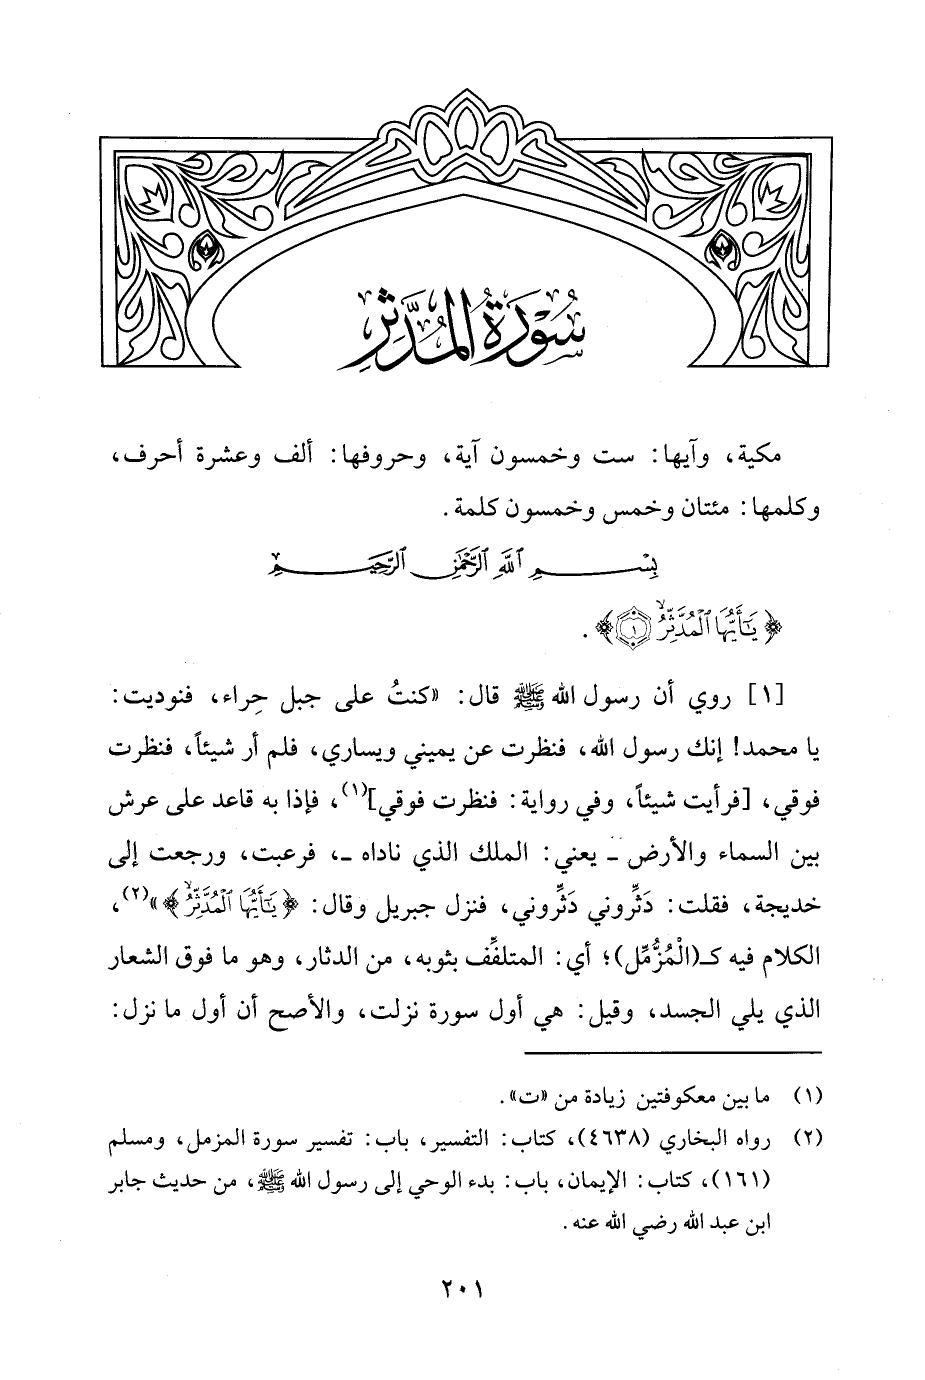 سُورَةُ المُدَّثِّرِ
مكية، وآيها: ست وخمسون آية، وحروفها: ألف وعشرة أحرف،
وكلمها: مئتان وخمس وخمسون كلمة.
بِسْمِ ٱللَّهِ ٱلرَّحْمَٰنِ ٱلرَّحِيمِ
﴿يَٰٓأَيُّهَا ٱلْمُدَّثِّرُۙ ١﴾.
[١] روي أن رسول الله ﷺ قال: «كنتُ على جبل حِراء، فنوديت:
يا محمد! إنك رسول الله، فنظرت عن يميني ويساري، فلم أر شيئاً، فنظرت
فوقي، [فرأيت شيئاً، وفي رواية: فنظرت فوقي](١)، فإذا به قاعد على عرش
بين السماء والأرض ـ يعني: الملك الذي ناداه ـ، فرعبت، ورجعت إلى
خديجة، فقلت: دَثِّروني دَثِّروني، فنزل جبريل وقال: ﴿يَٰٓأَيُّهَا ٱلْمُدَّثِّرُۙ﴾»(٢)،
الكلام فيه كـ(الْمُزَّمِّل)؛ أي: المتلفِّف بثوبه، من الدثار، وهو ما فوق الشعار
الذي يلي الجسد، وقيل: هي أول سورة نزلت، والأصح أن أول ما نزل:
(١) ما بين معكوفتين زيادة من «ت».
(٢) رواه البخاري (٤٦٣٨)، كتاب: التفسير، باب: تفسير سورة المزمل، ومسلم
(١٦١)، كتاب: الإيمان، باب: بدء الوحي إلى رسول الله ﷺ، من حديث جابر
ابن عبد الله رضي الله عنه.
٢٠١